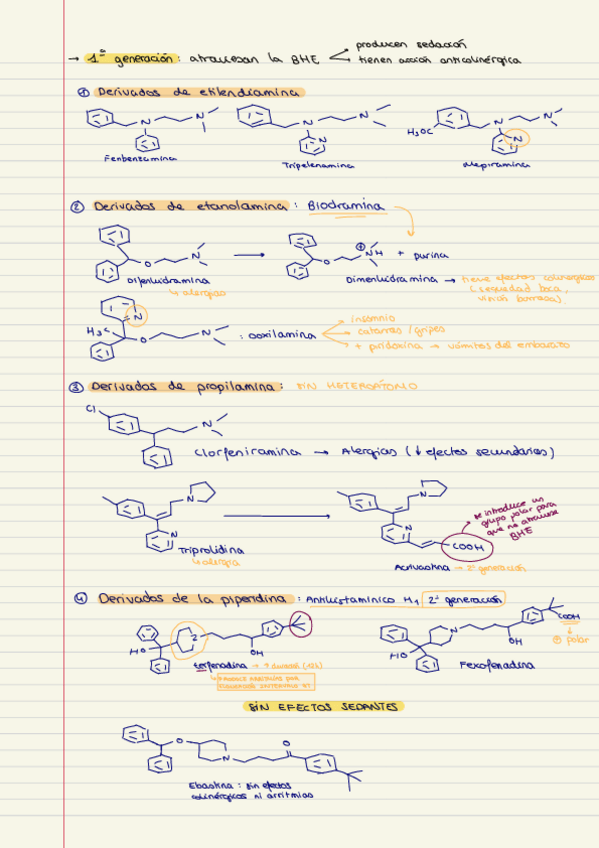 → 1ª generación: atraviesan la BHE
producen sedación
tienen acción anticolinérgica
① Derivados de etilendiamina
N
N
N
N
N
N
H₃CO
N
N
N
Fenbentamina
Tripelenamina
Mepiramina
② Derivados de etanolamina: Biodramina
O
N
O
⊕
NH
+ purina
Difenhidramina
Dimenhidramina → tiene efectos colinérgicos
↳ alergias
(sequedad boca,
visión borrosa).
N
H₃C
O
N
: Doxilamina
insomnio
catarros / gripes
+ piridoxina → vómitos del embarazo
③ Derivados de propilamina: SIN HETEROÁTOMO
Cl
N
Clorfeniramina → Alergias (↓ efectos secundarios)
N
N
N
N
COOH
se introduce un
grupo polar para
que no atraviese
BHE
Triprolidina
↳ alergia
Acrivastina → 2ª generación
④ Derivados de la piperidina: Antihistamínico H₁ 2ª generación
HO
OH
N
HO
OH
COOH
⊕ polar
terfenadina → ↑ duración (12h)
Fexofenadina
SIN EFECTOS SEDANTES
O
N
O
Ebastina: sin efectos
colinérgicos ni arritmias